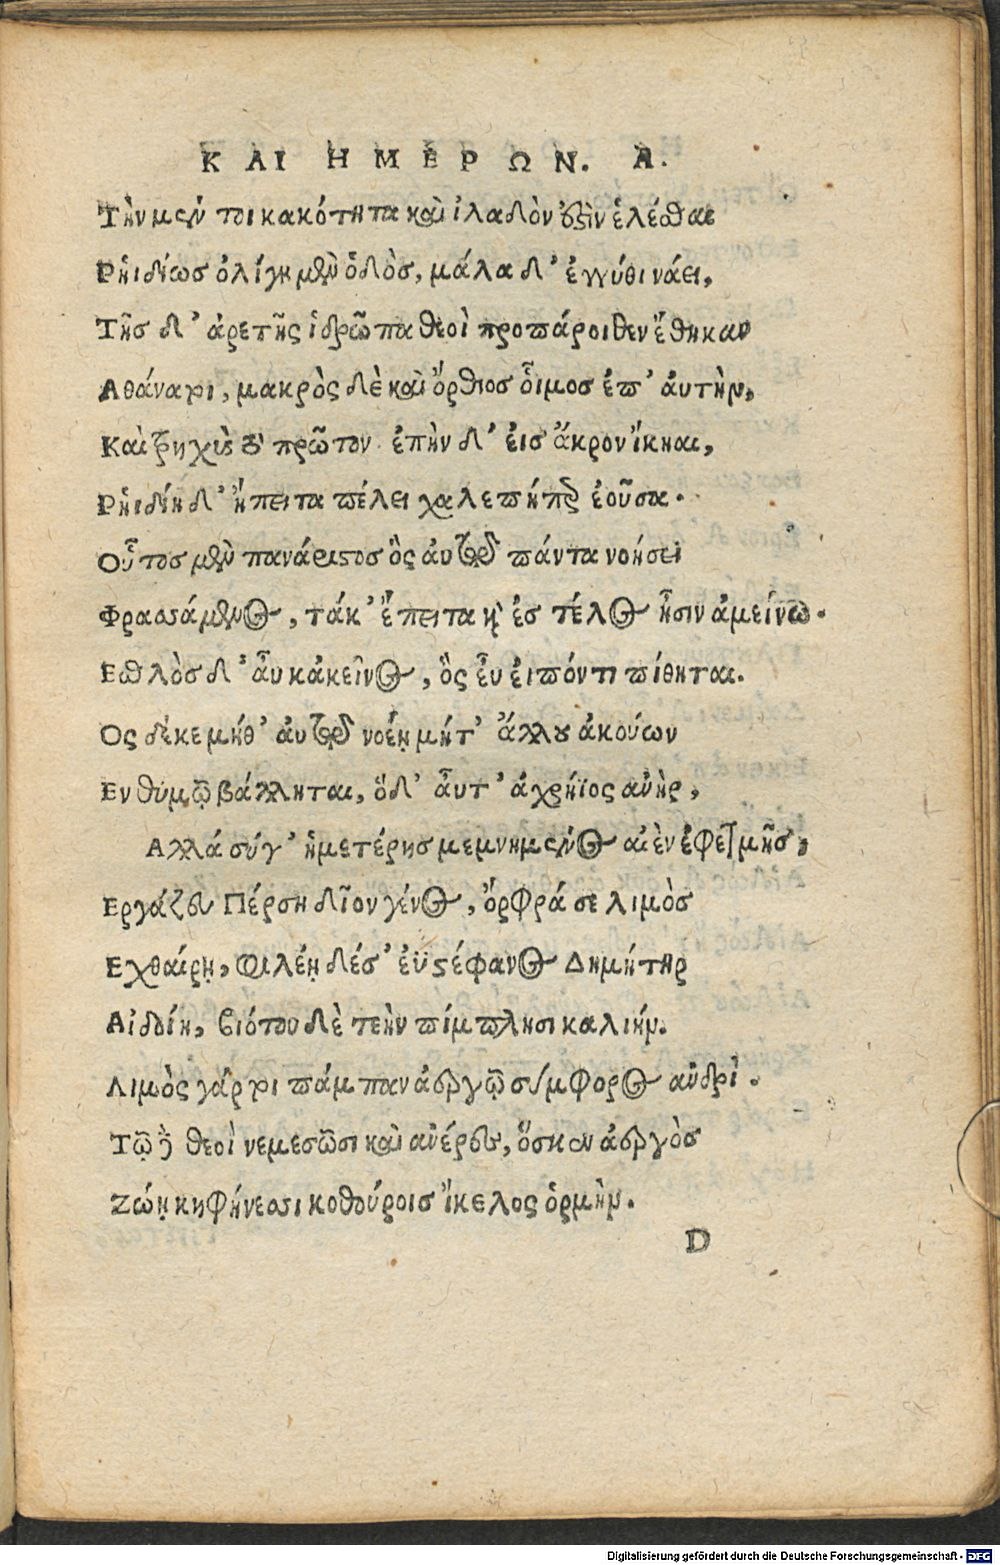 ΚΑΙ ΗΜΕΡΩΝ. Α.
Τὴν μὲν τοι κακότητα καὶ ἰλαδὸν ὅξιν ἑλέσθαι
Ρηιδίως ὀλίγη μὲν ὁδὸς, μάλα δ' ἐγγύθι νάει,
Τῆς δ' ἀρετῆς ἱδρῶτα θεοὶ προπάροιθεν ἔθηκαν
Αθάνατοι, μακρὸς δὲ καὶ ὄρθιος οἶμος ἐπ' ἀυτὴν,
Καὶ τρηχὺς τὸ πρῶτον ἐπὴν δ' εἰς ἄκρον ἵκηαι,
Ρηιδίη δ' ἤπειτα πέλει χαλεπήπερ ἐοῦσα.
Οὗτος μὲν πανάριστος ὃς ἀυτῷ πάντα νοήσει
Φρασσάμενος, τάκ' ἔπειτα καὶ ἐς τέλος ᾖσιν ἀμείνω.
Εσθλὸς δ' αὖ κἀκεῖνος, ὃς εὖ ἐιπόντι πίθηται.
Ος δέκε μήθ' ἀυτῷ νοέῃ μήτ' ἄλλου ἀκούων
Εν θυμῷ βάλληται, ὅδ' αὖτ' ἀχρήϊος ἀνὴρ,
Αλλά σύγ' ἡμετέρης μεμνημένος αἰὲν ἐφετμῆς,
Εργάζευ Πέρση δῖον γένος, ὄφρά σε λιμὸς
Εχθαίρῃ, φιλέῃ δέσ' ἐϋστέφανος Δημήτηρ
Αἰδοίη, βιότου δὲ τεὴν πίμπλησι καλιήν.
Λιμὸς γάρ τοι πάμπαν ἀεργῷ σύμφορος ἀνδρί.
Τῷ δὲ θεοὶ νεμεσῶσι καὶ ἀνέρες, ὅς κεν ἀεργὸς
Ζώῃ κηφήνεσσι κοθούροις ἴκελος ὁρμήν.
D
Digitalisierung gefördert durch die Deutsche Forschungsgemeinschaft - DFG